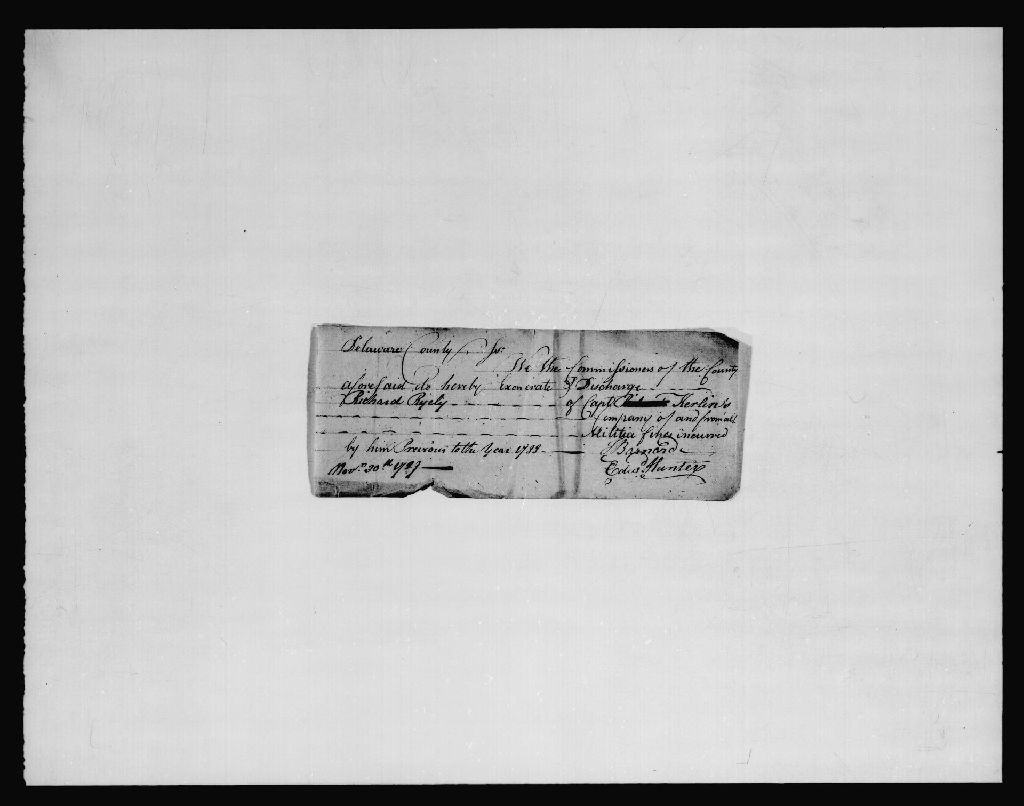 Delaware County Ss.
We the Commissioners of the County
aforesaid do hereby Exonerate & Discharge
Richard Ryely - - - - - of Capt. Kerlin's
Company of and from all
Militia fines incurred
by him Previous to the Year 1788
Edwd. Hunter
Novr. 30th 1789